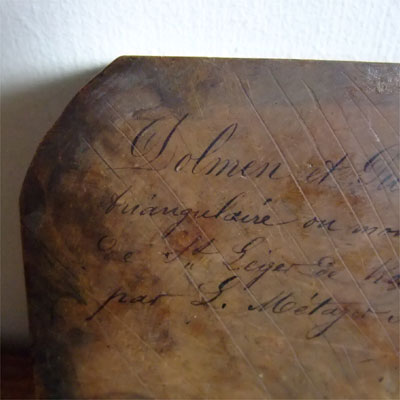 Dolmen et
triangulaire ou
de St Léger de
par L. Métayer